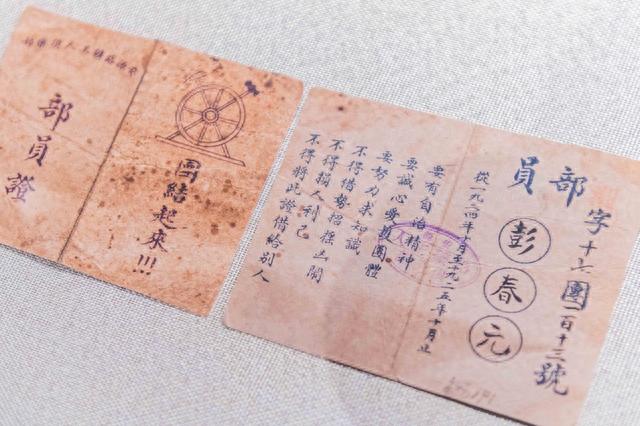 安源路礦工人俱樂部
部員證
團結起來!!!
部員
字十七團一百十三號
彭春元
從一九二四年十月至一九二五年十月止
要有自治精神
要誠心愛團體
要努力求知識
不得借勢招搖出鬧
不得損人利己
不得將此證借給別人